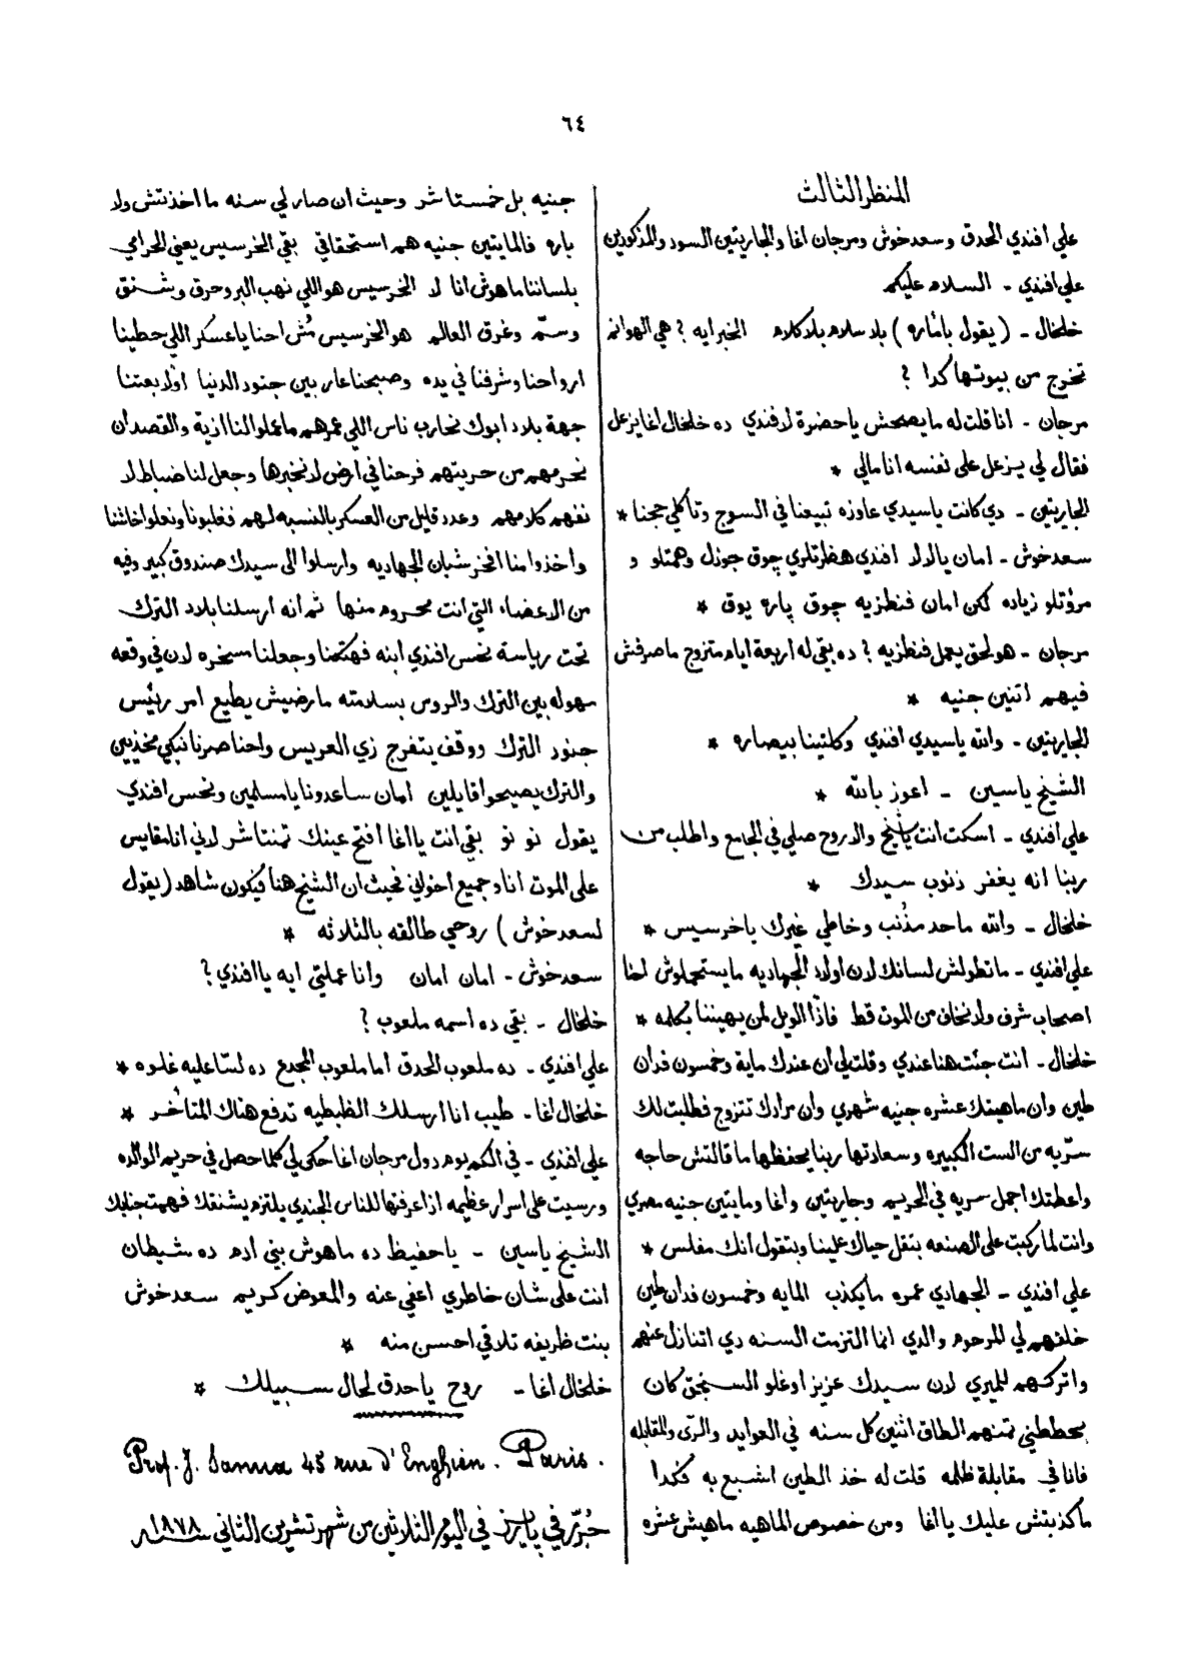 ٦٤
المنظر الثالث
علي افندي الحدق وسعد خوش ومرجان اغا والجاريتين السود والمذكورين
علي افندي - السلام عليكم
خلخال - (يقول بأثاره) بلا سلام بلا كلام الخبر ايه ؟ هي الهوانم
تخرج من بيوتها كدا ؟
مرجان - انا قلت له ما يصحش يا حضرة لافندي ده خلخال اغا يزعل
فقال لي يزعل على نفسه انا مالي *
الجاريتين - دي كانت يا سيدي عاوزه تبيعنا في السوج وتاكلي حجنا *
سعد خوش - امان يا لالا افندي هظرتلري چوق جوزل وهمتلو و
مرؤتلو زياده لكن امان فنطزيه چوق پاره يوق *
مرجان - هو لحق يعمل فنطزيه ؟ ده بقي له اربعة ايام متزوج ما صرفش
فيهم اتنين جنيه *
الجاريتين - والله يا سيدي افندي وكلتينا بيصاره *
الشيخ ياسين - اعوز بالله *
علي افندي - اسكت انت يا شيخ والا روح صلي في الجامع واطلب من
ربنا انه يغفر ذنوب سيدك *
خلخال - والله ماحد مذنب وخاطي غيرك يا خرسيس *
علي افندي - ما تطولش لسانك لان اولاد الجهاديه ما يستحملوش احنا
اصحاب شرف ولا نخاف من الموت قط فاذا الويل لمن يهيننا بكلمه *
خلخال - انت جئت هنا عندي وقلت لي أن عندك ماية وخمسون فدان
طين وان ماهيتك عشره جنيه شهري وان مرادك تتزوج فطلبت لك
سرّيه من الست الكبيره وسعادتها ربنا يحفظها ما قالتش حاجه
واعطتك اجمل سريه في الحريم وجاريتين واغا ومايتين جنيه مصري
وانت لما ركبت على الصنعه بتقل حياك علينا وبتقول انك مفلس *
علي افندي - الجهادي عمره ما يكذب المايه وخمسون فدان طين
خلفهم لي المرحوم والدي انما التزمت السنه دي اتنازل عنهم
واتركهم للميري لان سيدك عزيز اوغلو السنجق كان
يحططني تمنهم الطاق اثنين كل سنه في العوايد والرّي والمقابله
فانا في مقابلة ظلمه قلت له خذ الطين اشبع به فكدا
ما كذبتش عليك يا اغا ومن خصوص الماهيه ماهيش عشره
جنيه بل خمستاشر وحيث ان صار لي سنه ما اخذتش ولا
باره فالمايتين جنيه هم استحقاقي بقي الخرسيس يعني الحرامي
بلساننا ماهوش انا لا الخرسيس هو اللي نهب البر وحرق وشنق
وسمّ وغرق العالم هو الخرسيس مُش احنا يا عسكر اللي حطينا
ارواحنا وشرفنا في يده وصبحنا عار بين جنود الدنيا اولا بعتنا
جهة بلاد ابوك نحارب ناس اللي عمرهم ما عملوا لنا اذية والقصد ان
نحرمهم من حريتهم فرحنا في ارض لا نخبرها وجعل لنا ضباط لا
نفهم كلامهم وعدد قليل من العسكر بالنسبه لهم فغلبونا ونعلوا خاشنا
واخذوا منا افخر شبان الجهاديه وارسلوا الى سيدك صندوق كبير وفيه
من الاعضاء التي انت محروم منها ثم انه ارسلنا بلاد الترك
تحت رياسة نحس افندي ابنه فهتكنا وجعلنا مسخره لان في وقعه
مهوله بين الترك والروس بسلامته ما رضيش يطيع امر رئيس
جنود الترك ووقف يتفرج زي العريس واحنا صرنا نبكي مخذيين
والترك يصيحوا قايلين امان ساعدونا يا مسلمين ونحس افندي
يقول نو نو بقي انت يا اغا افتح عينك تمنتاشر لاني انا مقايس
على الموت انا وجميع اخواني فحيث ان الشيخ هنا فيكون شاهد (يقول
لسعد خوش) روحي طالقه بالثلاثه *
سعد خوش - امان امان وانا عملتي ايه يا افندي ؟
خلخال - بقي ده اسمه ملعوب ؟
علي افندي - ده ملعوب الحدق اما ملعوب المجدع ده لسّا عليه غلوه *
خلخال اغا - طيب انا ارسلك الظبطيه تدفع هناك المتأخر *
علي افندي - في الكم يوم دول مرجان اغا حكى لي كلما حصل في حريم الوالده
ورسيت على اسرار عظيمه اذا عرفتها للناس الجندي يلتزم يشنقك فهمت جنابك
الشيخ ياسين - يا حفيظ ده ماهوش بني ادم ده شيطان
انت على شان خاطري اعفي عنه والمعوض كريم سعد خوش
بنت ظريفه تلاقي احسن منه *
خلخال اغا - روح يا حدق لحال سبيلك *
Prof. J. Sanua 45 rue d'Enghien. Paris.
حُرّر في پاريز في اليوم الثلاثين من شهر تشرين الثاني سنة ١٨٧٨